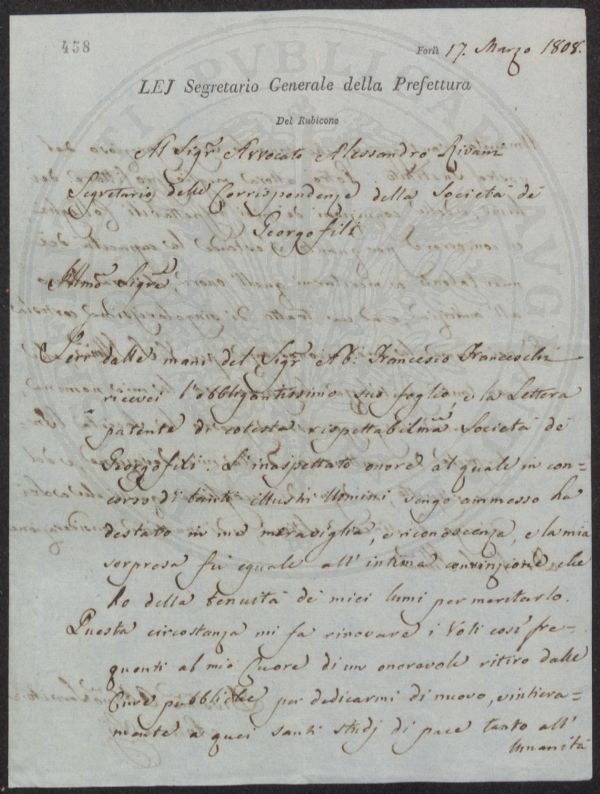 458
Forlì 17. Marzo 1808.
LEJ Segretario Generale della Prefettura
Del Rubicone
Al Sigr. Avvocato Alessandro Rivani
Segretario delle Corrispondenze della Società de
Georgofili
Illmo. Sigre.
Ieri dalle mani del Sigr. Ab. Francesco Franceschi
ricevei l'obbligantissimo suo foglio, e la Lettera
patente di cotesta rispettabilma. Società de
Georgofili. L'inaspettato onore al quale in con=
corso di tanti illustri Uomini vengo ammesso ha
destato in me meraviglia, e riconoscenza, e la mia
sorpresa fù eguale all'intima convinzione, che
ho della tenuità de miei lumi per meritarlo.
Questa circostanza mi fa rinovare i Voti così fre=
quenti al mio Cuore di un onorevole ritiro dalle
Cure pubbliche per dedicarmi di nuovo, e intiera=
mente a quei santi studj di pace tanto all'
Umanità